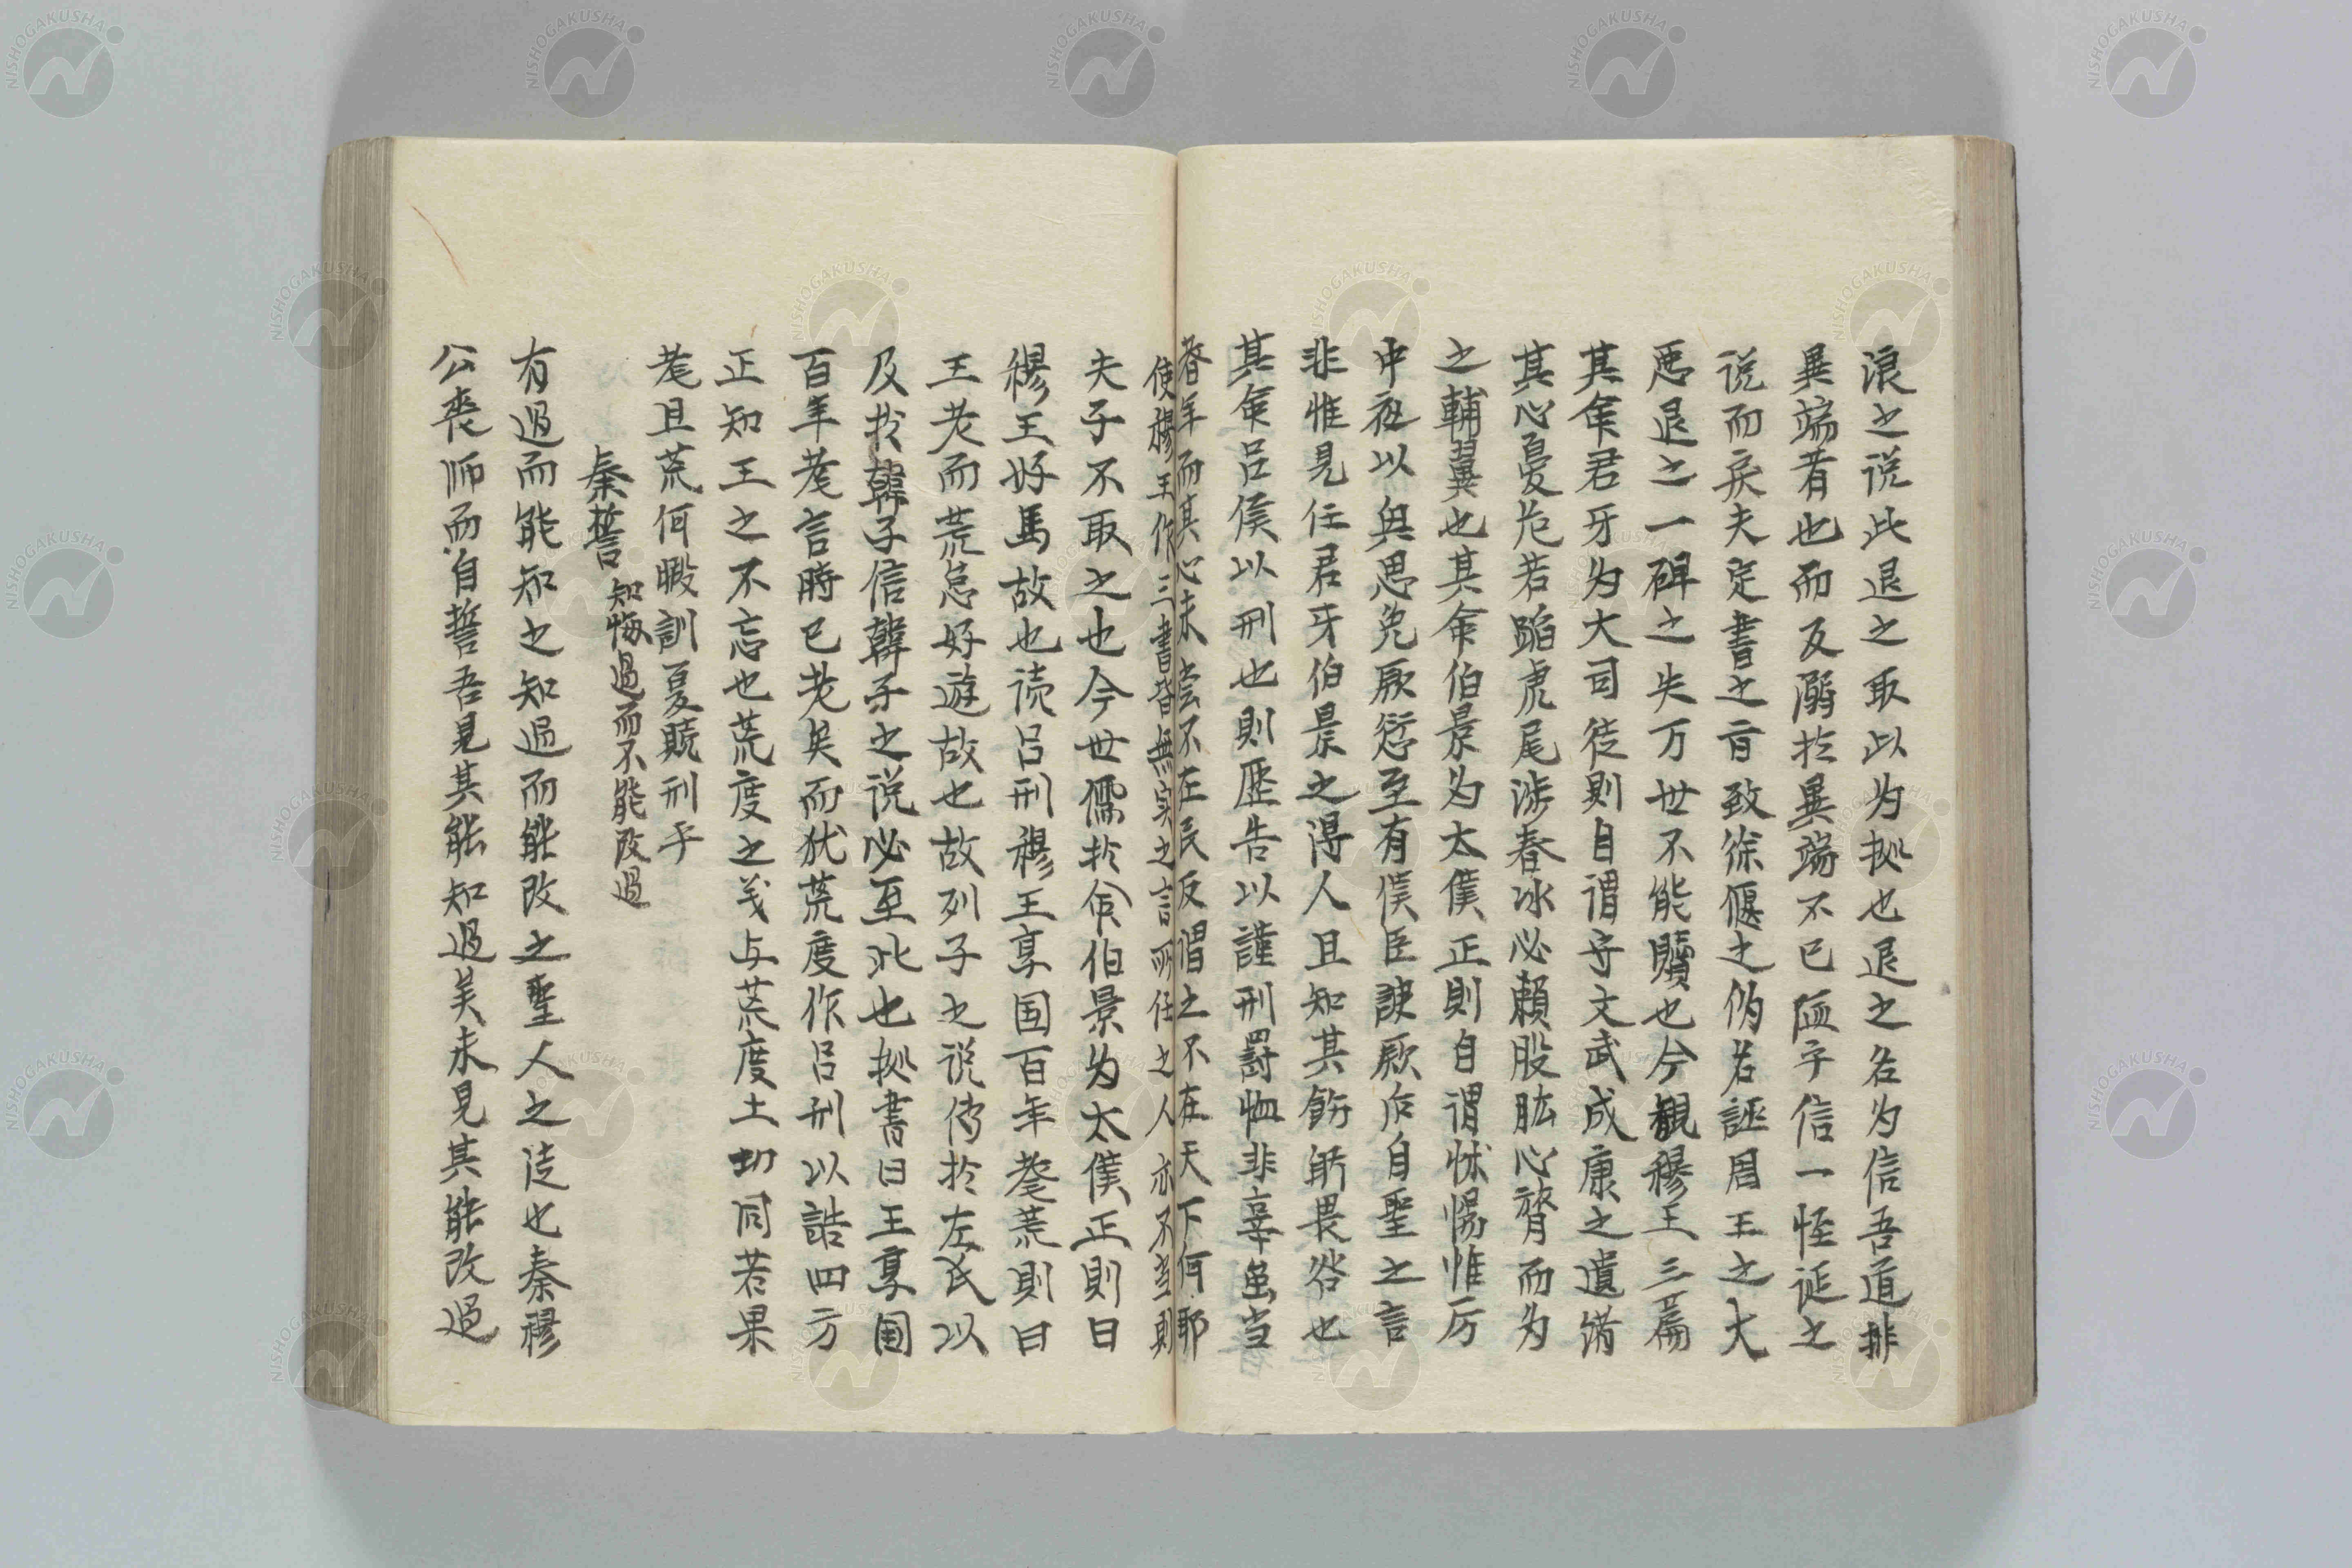 浪之说此退之取以为拠也退之名为信吾道排
異端者也而反溺於異端不已區乎信一怪诞之
说而戾夫定書之旨致徐偃之偽若誣周王之大
悪退之一碑之失万世不能贖也今観穆王三篇
其命君牙为大司徒則自謂守文武成康之遺緒
其心憂危若蹈虎尾涉春冰必頼股肱心膂而为
之輔翼也其命伯景为太僕正則自謂怵惕惟厉
中夜以興思免厥愆至有僕臣諛厥后自聖之言
非惟見任君牙伯景之得人且知其飭躬畏咎也
其命呂侯以刑也則歷告以謹刑罰恤非辜虽当
耆年而其心未尝不在民反谓之不在天下何耶
使穆王作三書皆無实之言所任之人亦不当則
夫子不取之也今世儒於命伯景为太僕正則曰
穆王好馬故也读呂刑穆王享国百年耄荒則曰
王老而荒怠好遊故也故列子之说传於左氏以
及於韓子信韓子之说必至此也拠書曰王享国
百年耄言時已老矣而犹荒度作呂刑以誥四方
正知王之不忘也荒度之义与荒度土功同若果
耄且荒何暇訓夏贖刑乎
秦誓 知悔過而不能改過
有過而能知之知過而能改之聖人之徒也秦穆
公喪师而自誓吾見其能知過矣未見其能改過